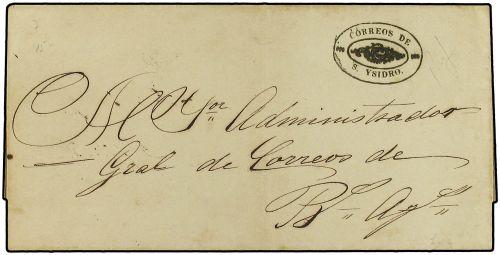 CORREOS DE
S. YSIDRO.
Al Sor Administrador
Gral de Correos de
Bs Ays